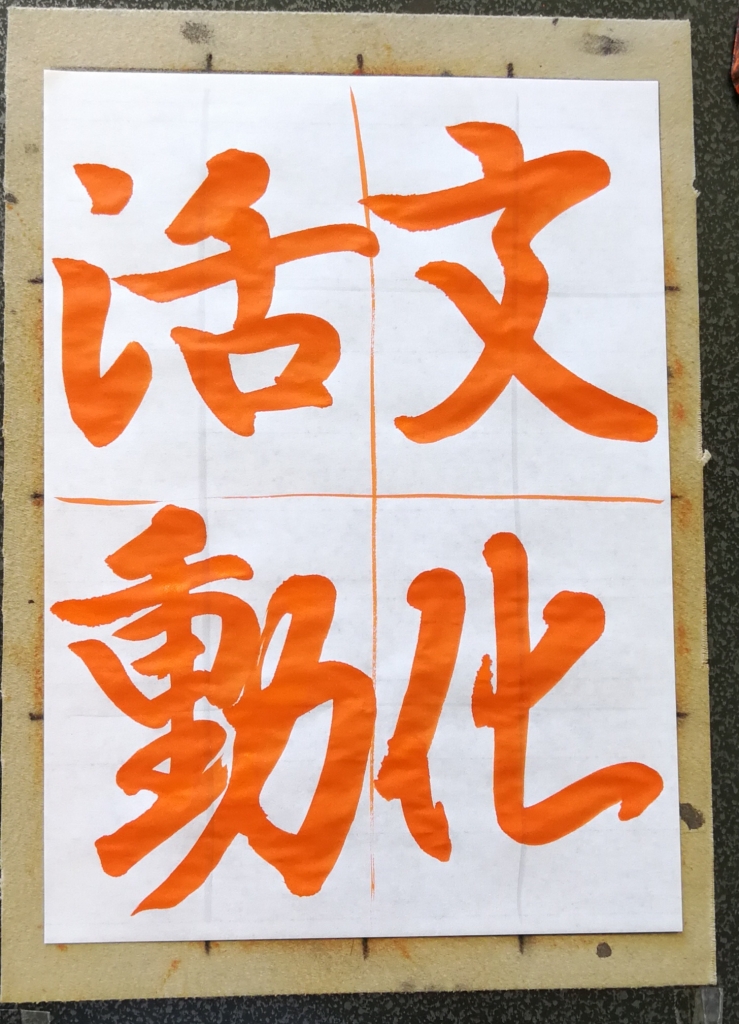 文化
活動